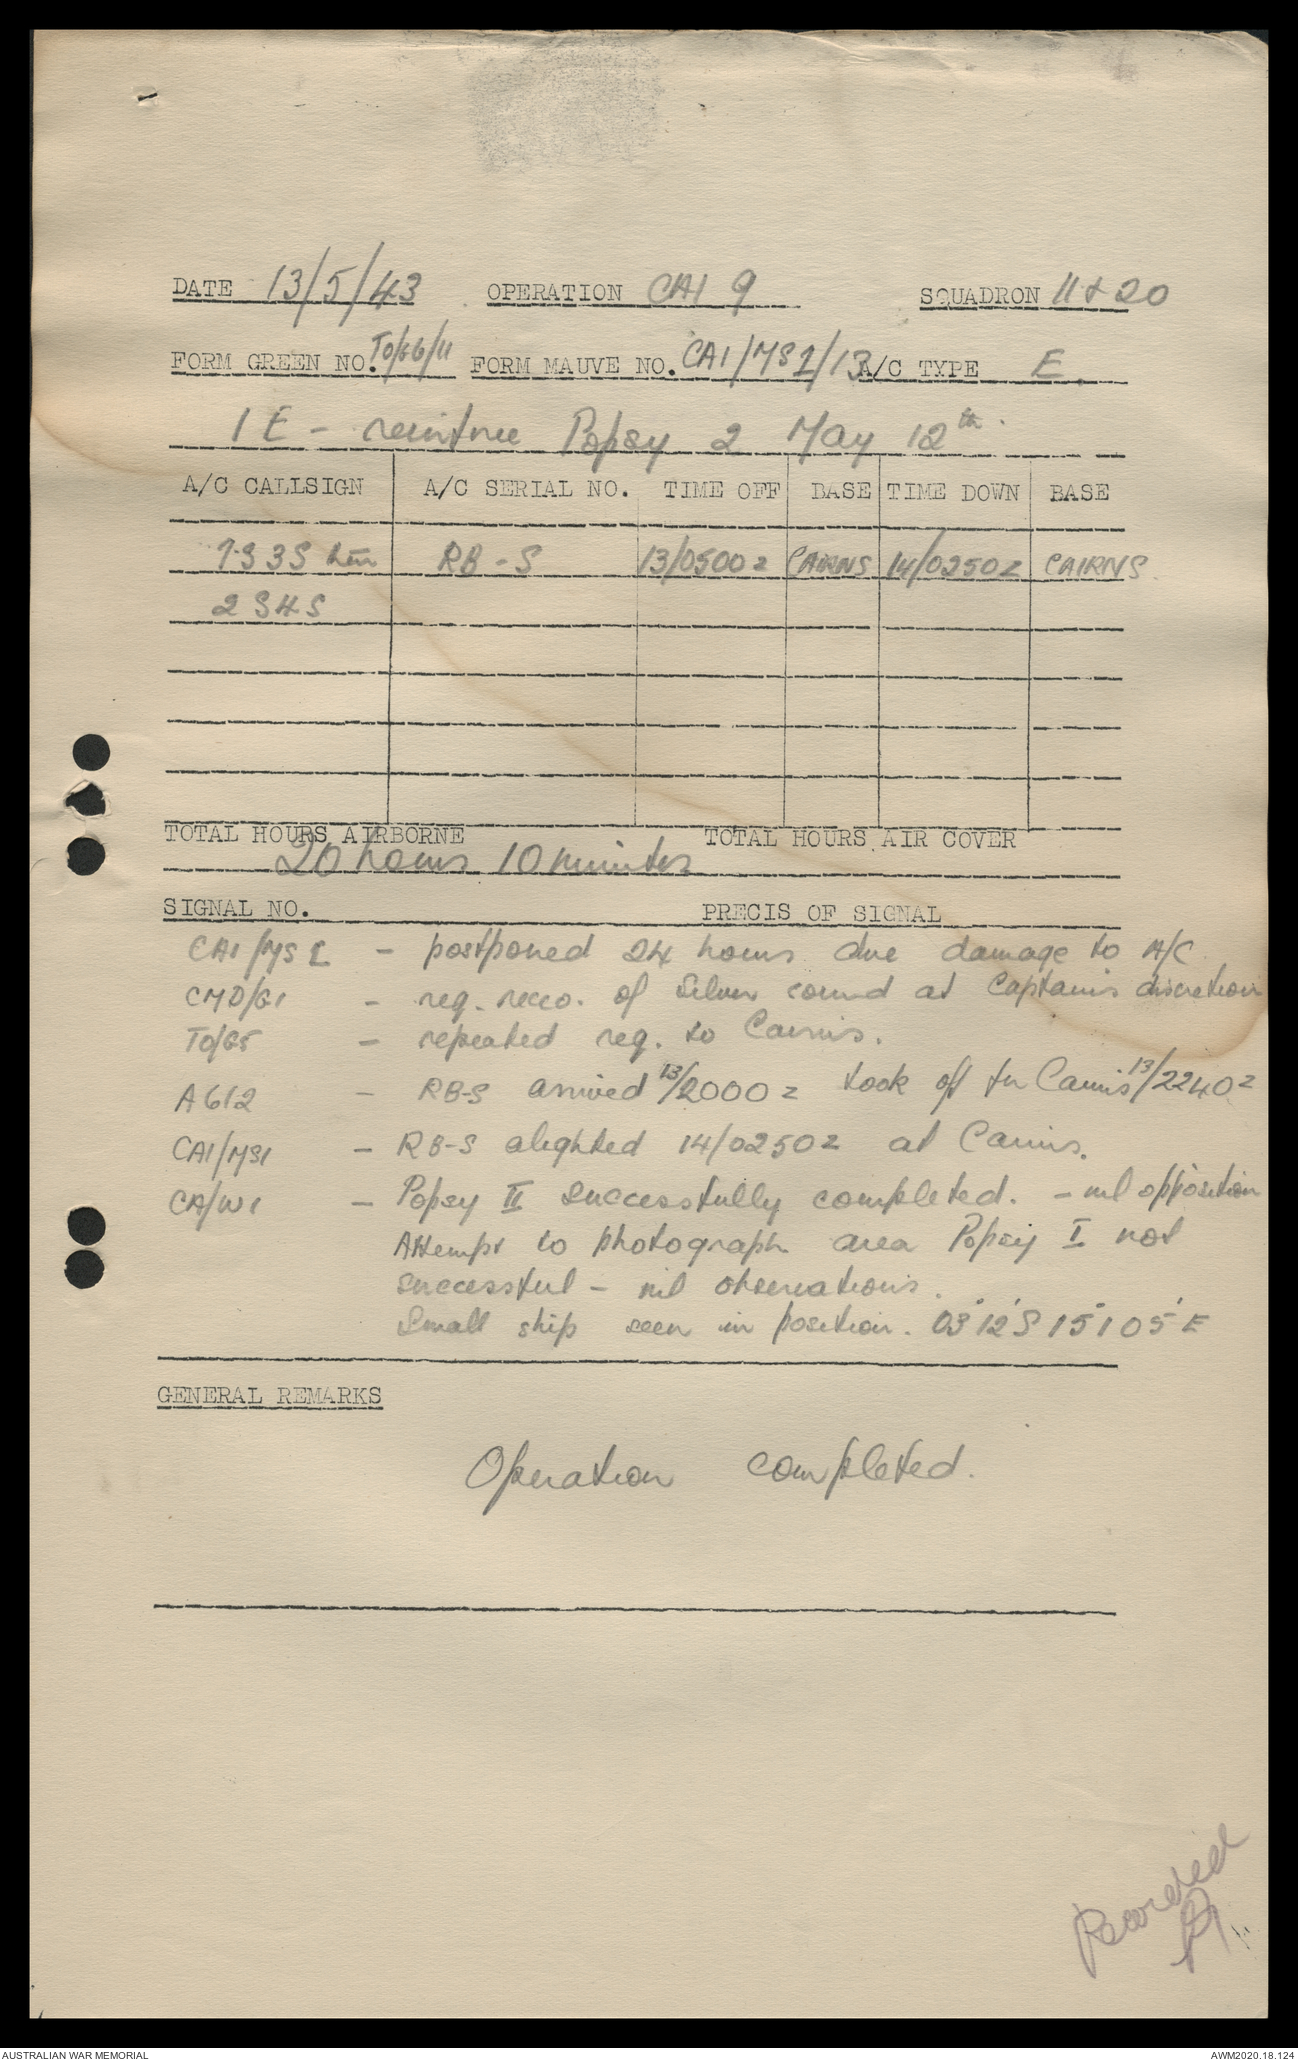 DATE 13/5/43 OPERATION CAI 9 SQUADRON 11 & 20
FORM GREEN NO. TO/G6/11 FORM MAUVE NO. CAI/MS1/13 A/C TYPE E.
1 E - Popsy 2 May 12th.
A/C CALLSIGN A/C SERIAL NO. TIME OFF BASE TIME DOWN BASE
7S3S RB-S 13/0500z CAIRNS 14/0250Z CAIRNS
2S4S
TOTAL HOURS AIRBORNE TOTAL HOURS AIR COVER
20 hours 10 minutes
SIGNAL NO. PRECIS OF SIGNAL
CAI/MS1 - postponed 24 hours due damage to A/C
CMD/G1 - req. recco. of Silver sound at Captain's discretion
TO/G5 - repeated req. to Cairns.
A612 - RB-S arrived 13/2000z took off for Cairns 13/2240z
CAI/MS1 - RB-S alighted 14/0250z at Cairns.
CA/W1 - Popsy II successfully completed. - nil opposition
Attempt to photograph area Popsy I not
successful - nil observations.
Small ship seen in position. 03°12'S 151°05'E
GENERAL REMARKS
Operation completed.
Recorded
AUSTRALIAN WAR MEMORIAL AWM2020.18.124